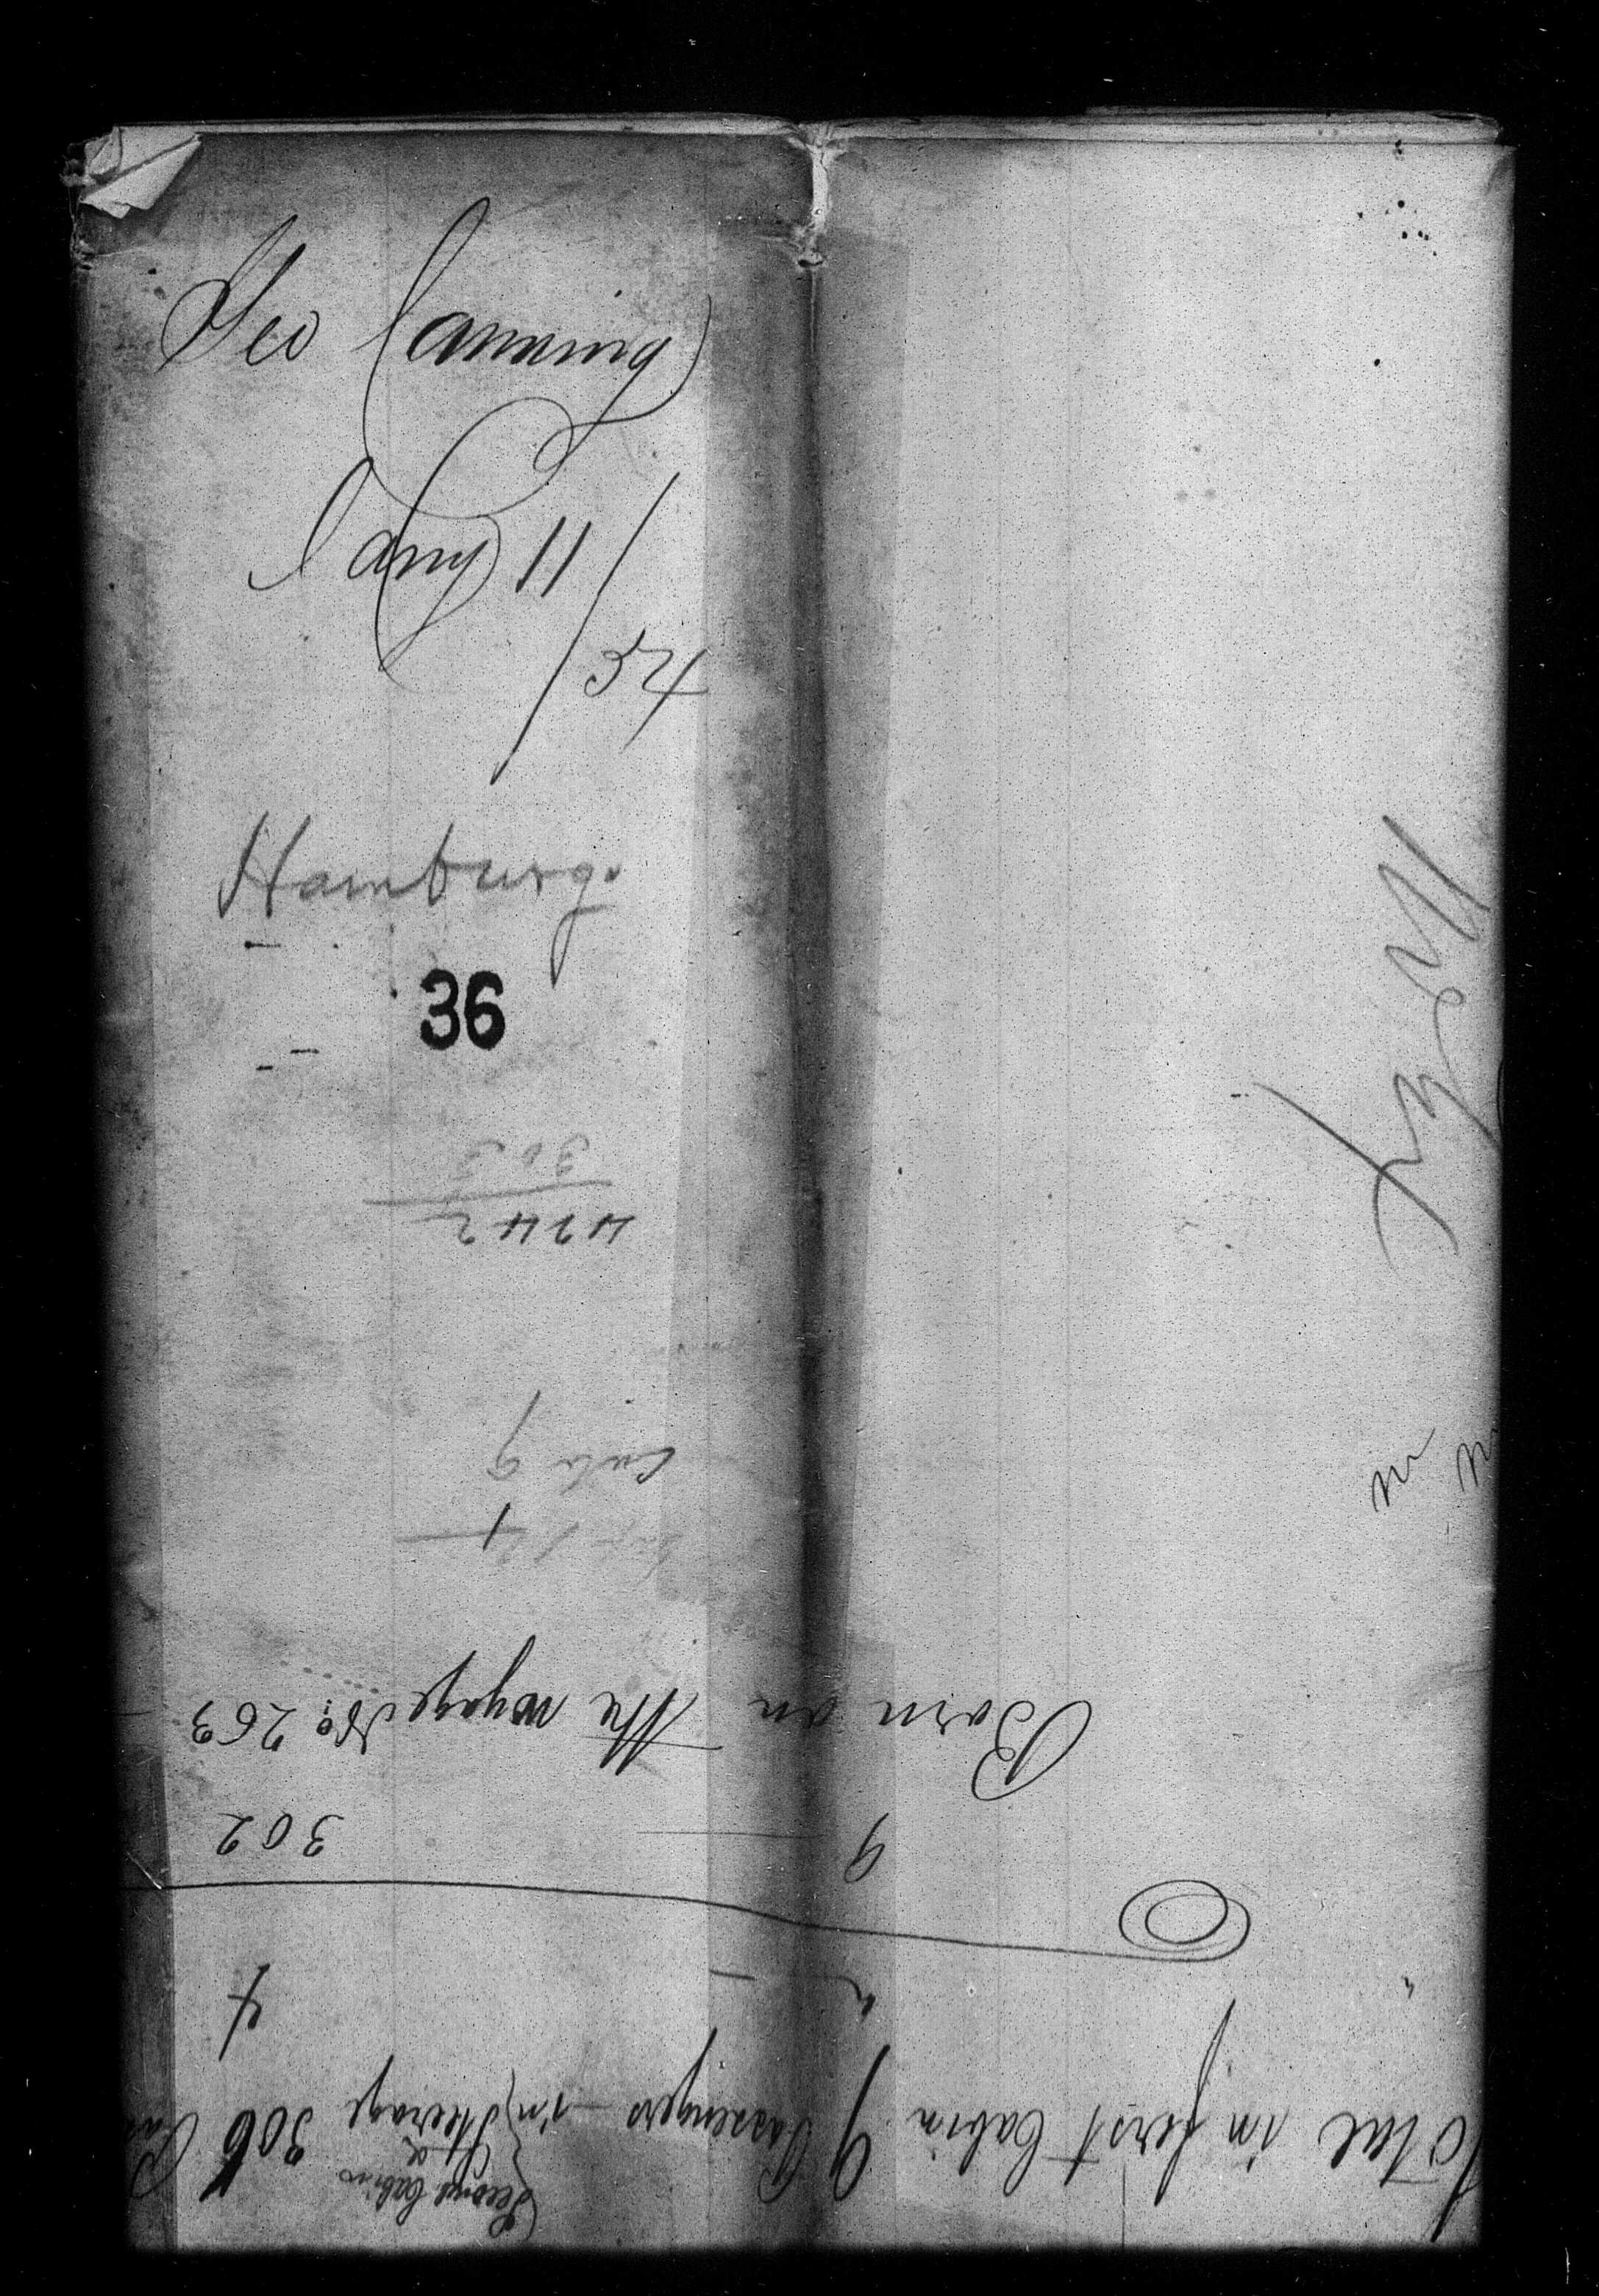 Geo Canning
Aug 11/54
Hamburg.
36
303
4242
9
Born on the voyage No: 263
9 302
4
Total in first Cabin 9 Passengers — in Steerage 306 Pas
Second Cabin &